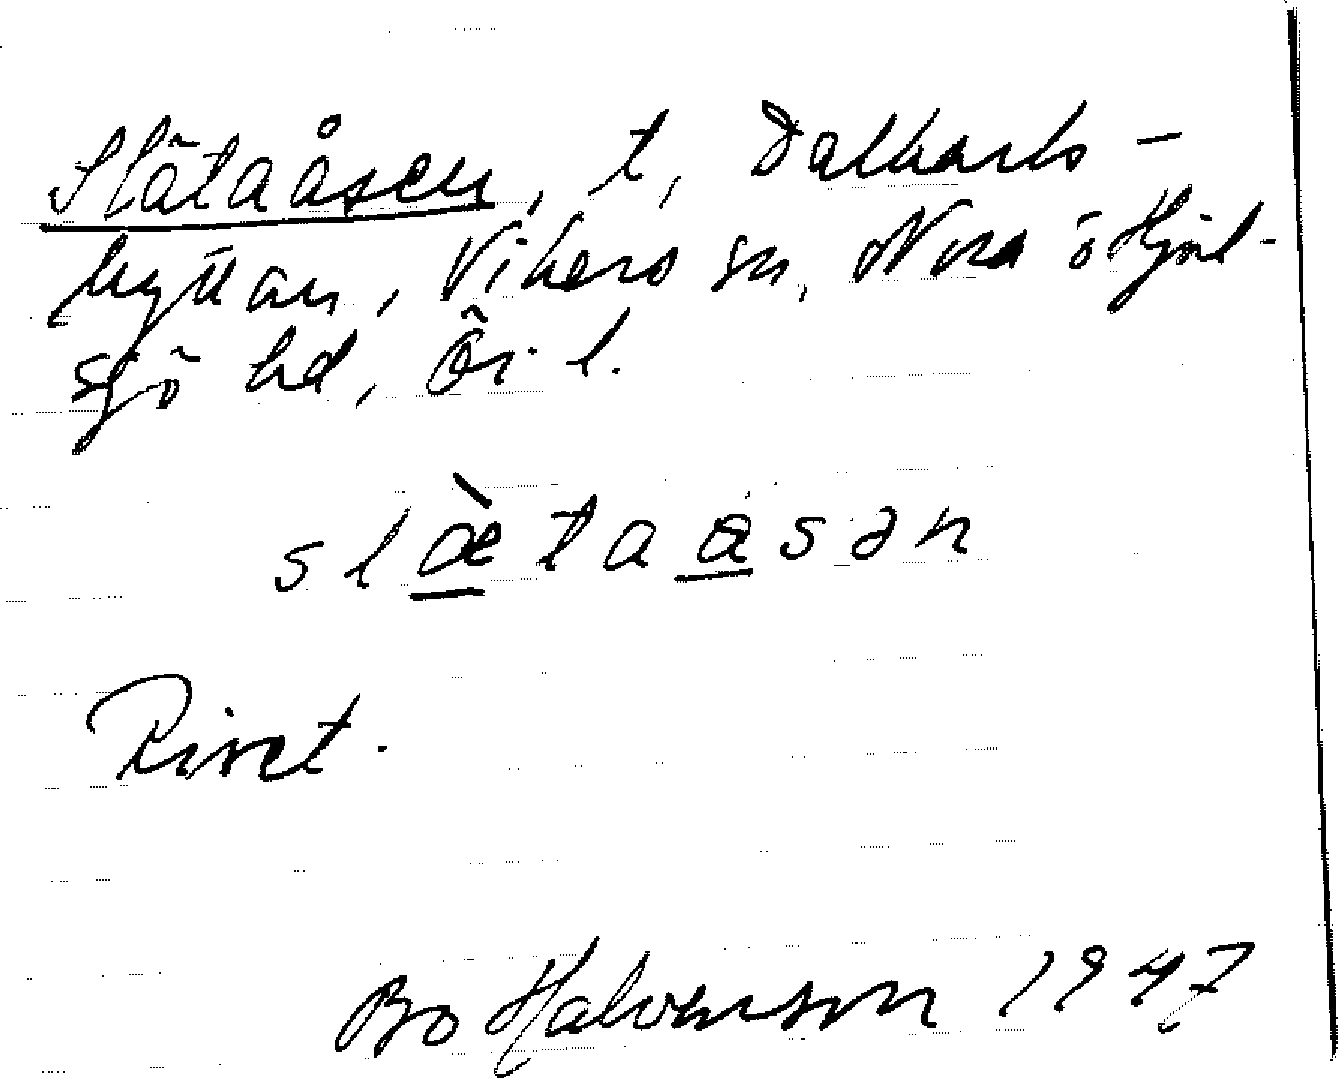 Slätaåsen, t, Dalkarls-
hyttan, Vikers sn, Nora o Hjul-
sjö hd, Ör. l.
slæ̀taåsən
Rivet.
Bo Halvarson 1947